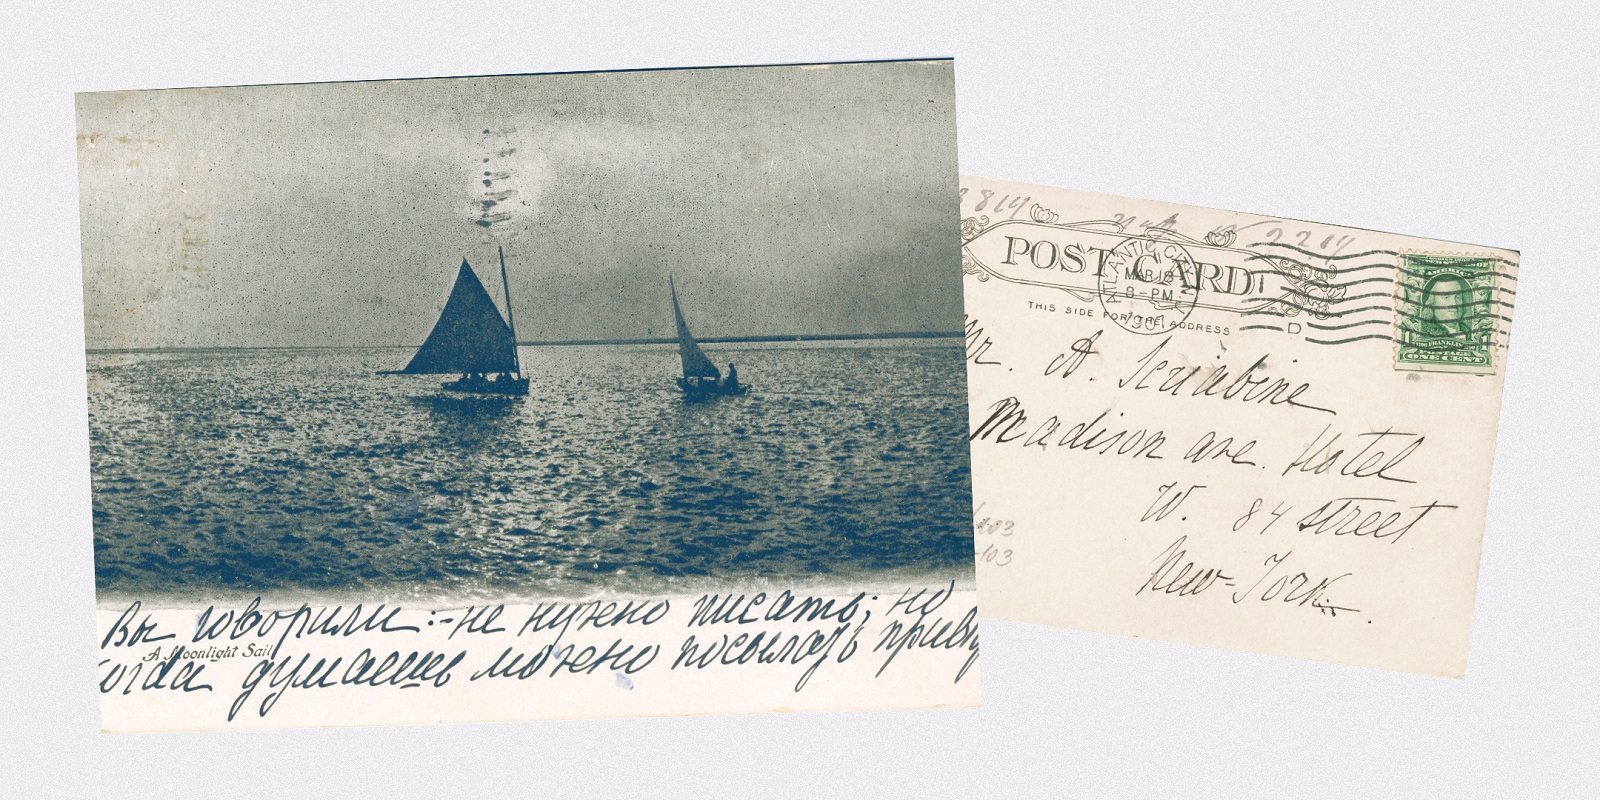 Вы говорили:- не нужно писать; но
когда думаешь можно посылать привет
A Moonlight Sail
POST CARD
THIS SIDE FOR THE ADDRESS
ATLANTIC CITY, N.J.
MAR 18
8-PM
1907
D
POSTAGE
ONE CENT
Mr. A. Scriabine
Madison ave. Hotel
W. 84 street
New-York.
103
-103